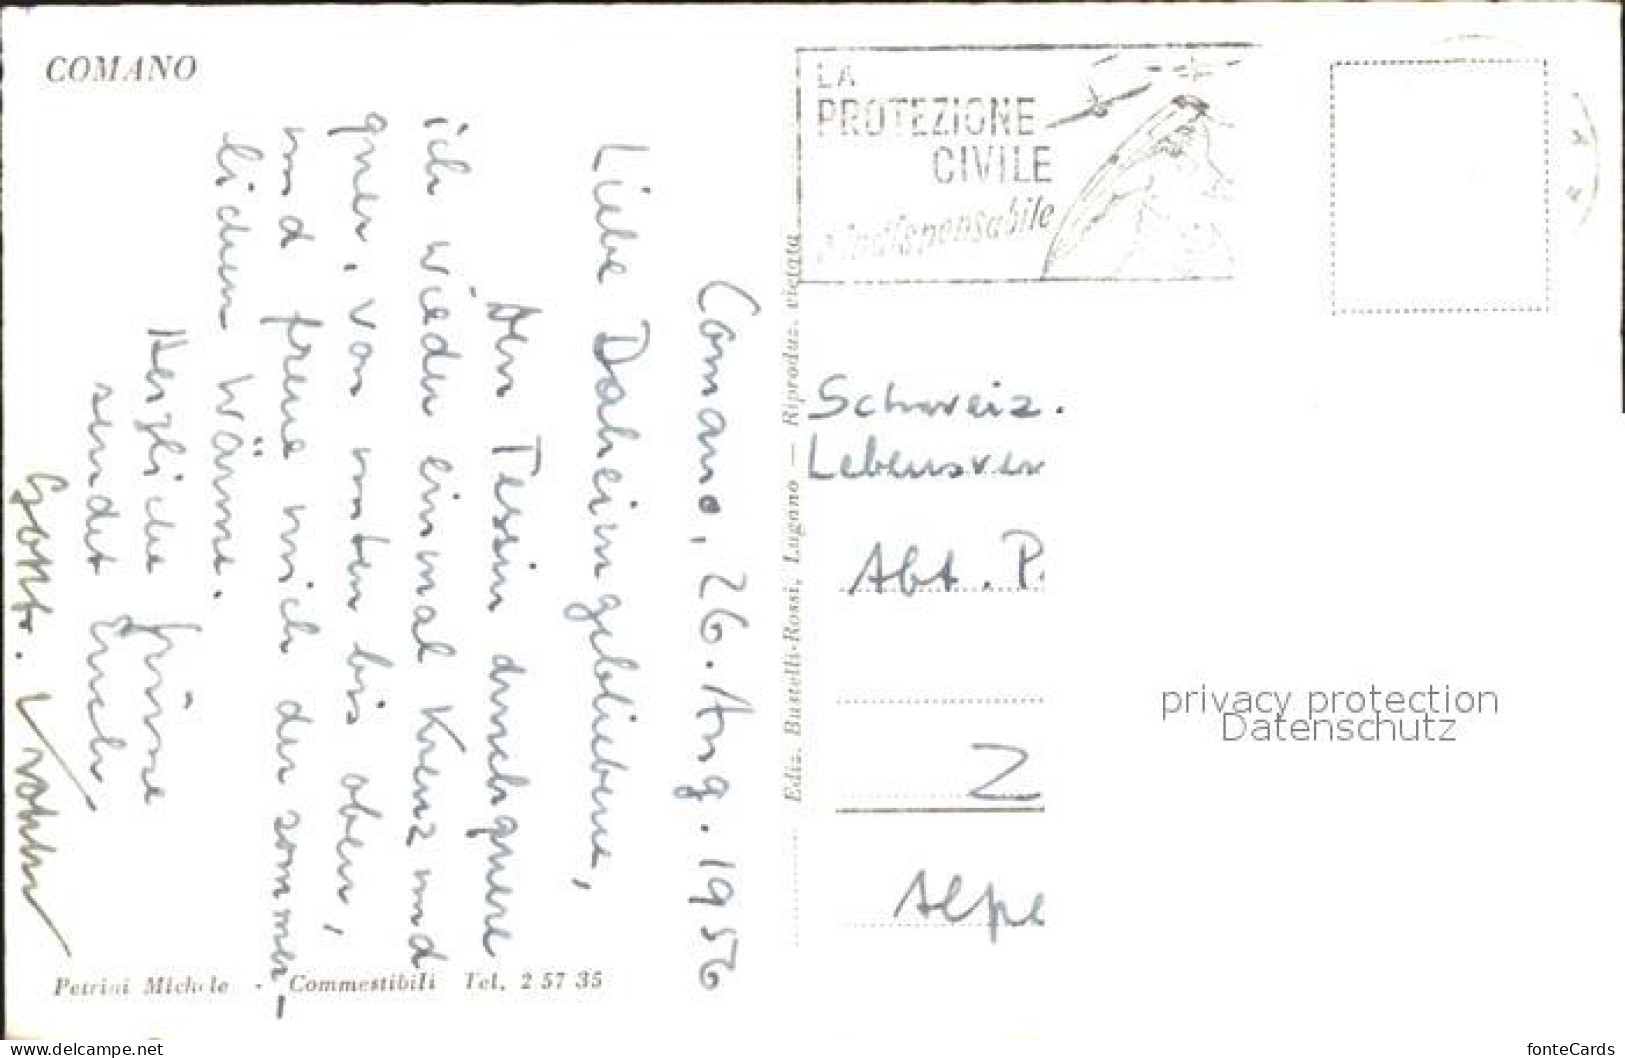 COMANO
Comano, 26. Aug. 1956
Liebe Daheimgebliebene,
Den Tessin durchquere
ich wieder einmal Kreuz und
quer, von unten bis oben,
und freue mich der sommer-
lichen Wärme.
Herzliche Grüsse
sendet Euch,
Gottfr.
Petrini Michele - Commestibili Tel. 2 57 35
Ediz. Bustelli-Rossi, Lugano — Riproduz. vietata
LA
PROTEZIONE
CIVILE
è indispensabile
Schweiz.
Lebensver
Abt. P.
Z
Alpe
privacy protection
Datenschutz
www.delcampe.net
fonteCards